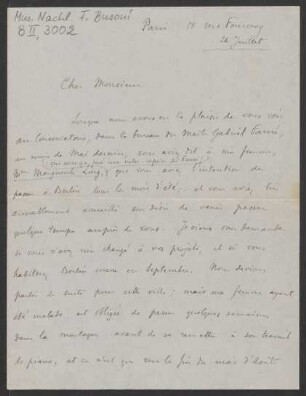 Mus. Nachl. F. Busoni
B II, 3002
Paris 18 rue Fourcroy
24 Juillet
Cher Monsieur
Lorsque nous avons eu le plaisir de vous voir
au Conservatoire, dans le bureau du Maître Gabriel Fauré,
au mois de Mai dernier, vous avez dit à ma femme,
Mme Marguerite Long, que vous aviez l'intention de
passer à Berlin tous les mois d'été, et vous avez, très
aimablement accueilli son désir de venir passer
quelque temps auprès de vous. Je viens vous demander
si vous n'avez rien changé à vos projets, et si vous
habiterez Berlin encore en Septembre. Nous devions
partir de suite pour cette ville; mais ma femme ayant
été malade est obligée de passer quelques semaines
dans la montagne avant de se remettre à son travail
de piano, et ce n'est que vers la fin du mois d'Août